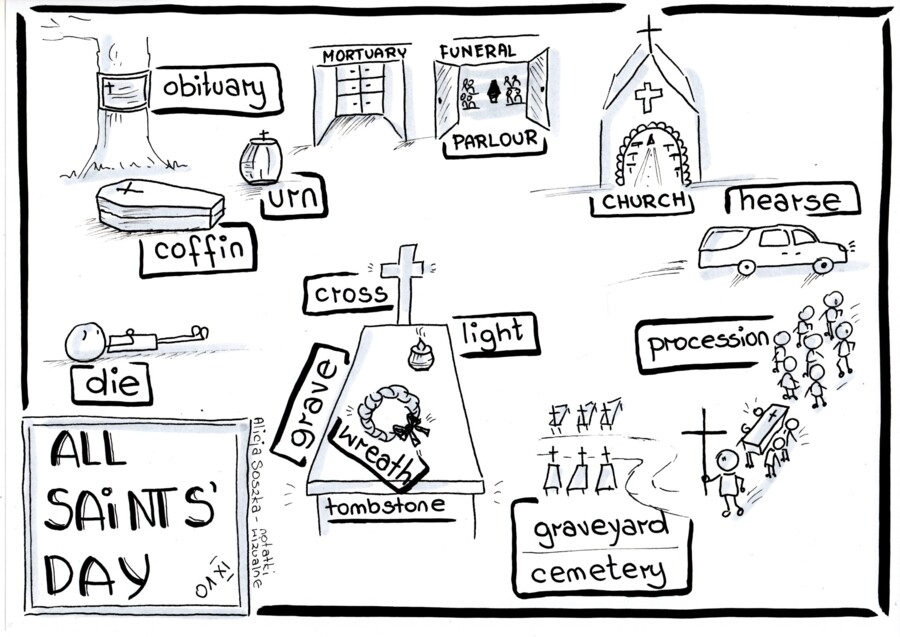 obituary
MORTUARY
FUNERAL
PARLOUR
urn
CHURCH
hearse
coffin
cross
light
procession
die
grave
wreath
tombstone
graveyard
cemetery
ALL
SAiNTS'
DAY
01/XI
Alicja Soszka - notatki
wizualne